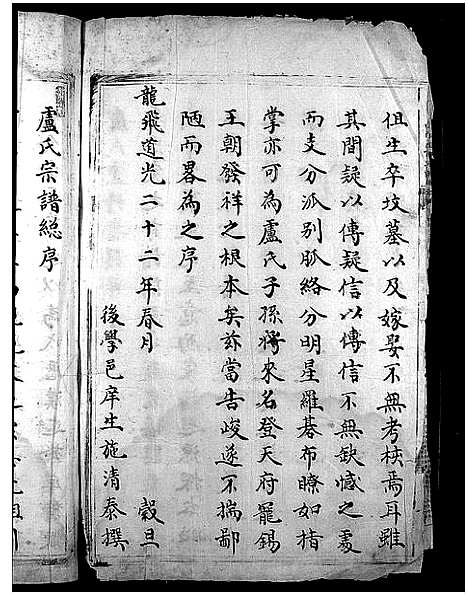 但生卒坟墓以及嫁娶不無考核焉耳雖
其間疑以傳疑信以傳信不無缺憾之處
而支分派別脈絡分明星羅碁布瞭如指
掌亦可為盧氏子孫將來名登天府寵錫
王朝發祥之根本矣茲當告峻遂不揣鄙
陋而畧為之序
龍飛道光二十二年春月 穀旦
後學邑庠生施清泰撰
盧氏宗譜總序